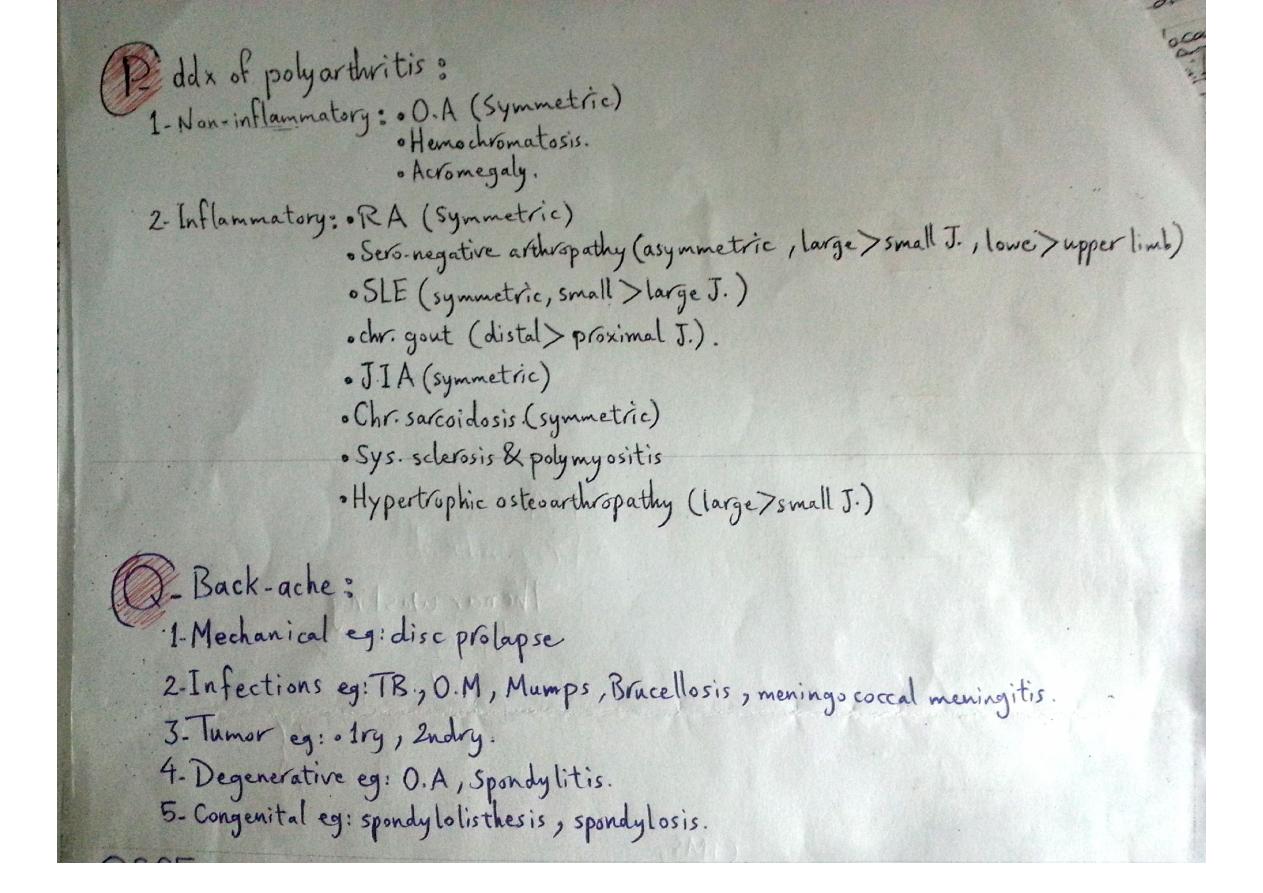 P- ddx of polyarthritis :
1- Non-inflammatory : • O.A (Symmetric)
• Hemochromatosis.
• Acromegaly.
2- Inflammatory : • RA (Symmetric)
• Sero-negative arthropathy (asymmetric , large > small J. , lowe > upper limb)
• SLE (symmetric, small > large J. )
• chr. gout (distal > proximal J.) .
• J.I A (symmetric)
• Chr. sarcoidosis (symmetric)
• Sys. sclerosis & polymyositis
• Hypertrophic osteoarthropathy (large > small J.)
Q- Back-ache :
1- Mechanical eg: disc prolapse
2- Infections eg: TB , O.M , Mumps , Brucellosis , meningococcal meningitis .
3- Tumor eg: • 1ry , 2ndry .
4- Degenerative eg: O.A , Spondylitis.
5- Congenital eg: spondylolisthesis , spondylosis .